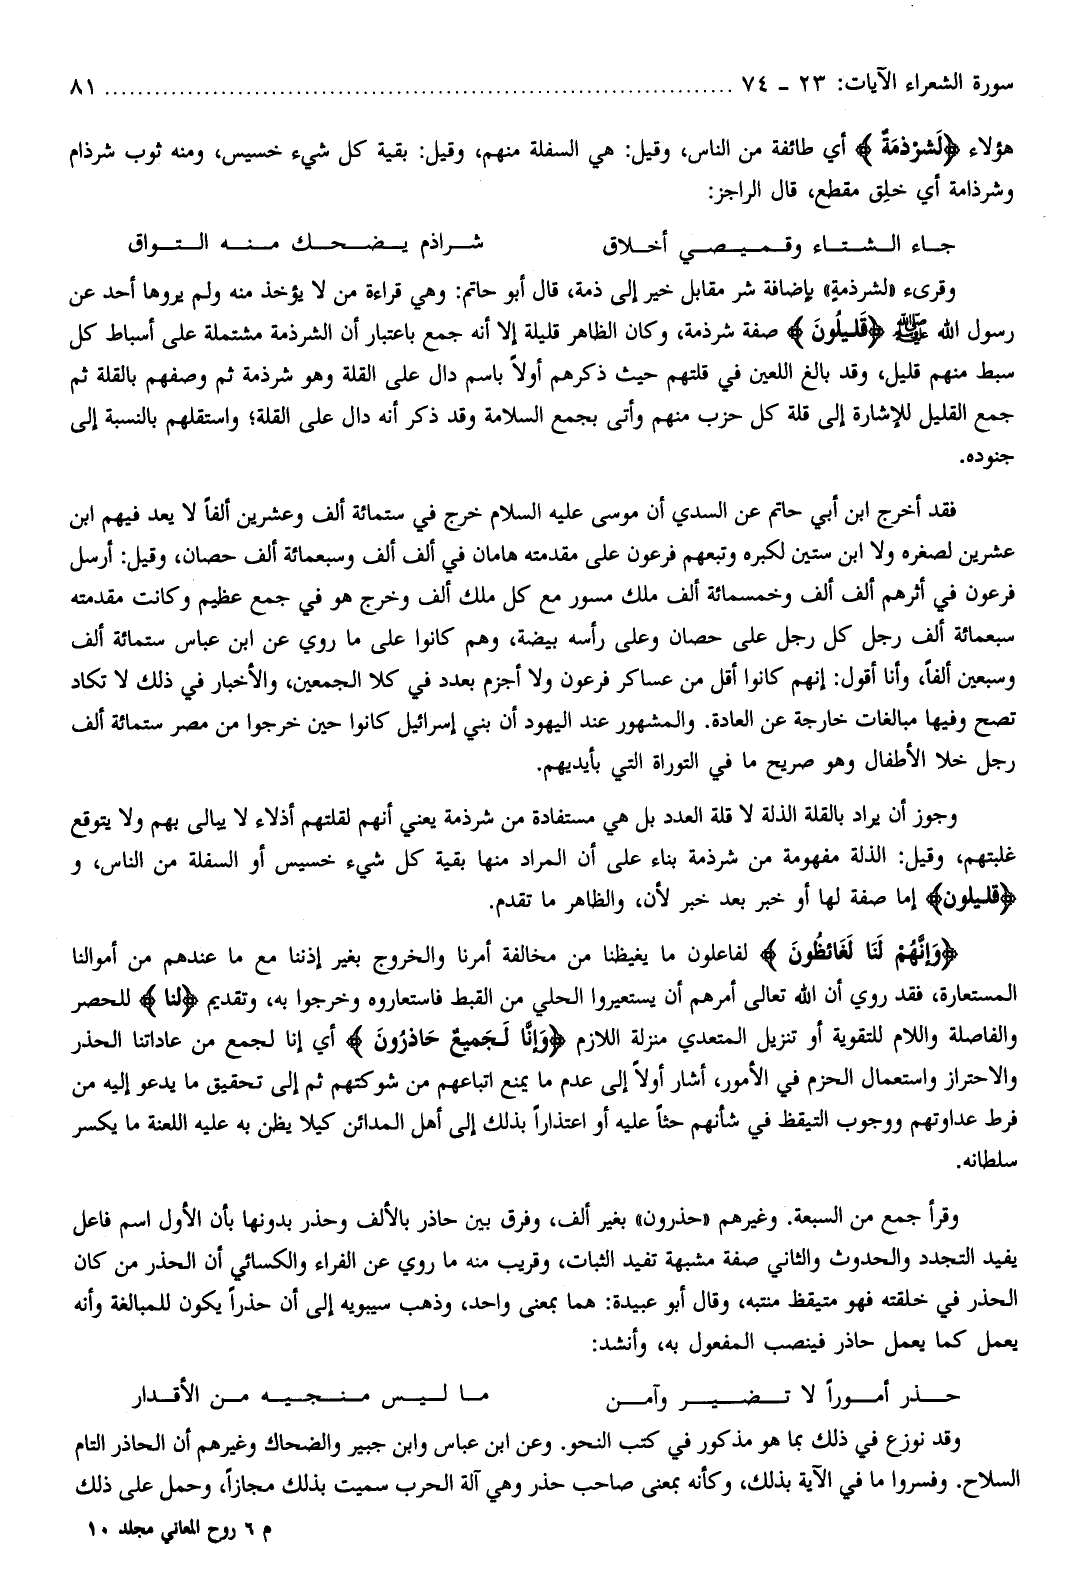 سورة الشعراء الآيات: ٢٣ - ٧٤ ........................................................................ ٨١
هؤلاء ﴿لَشِرْذِمَةٌ﴾ أي طائفة من الناس، وقيل: هي السفلة منهم، وقيل: بقية كل شيء خسيس، ومنه ثوب شرذام
وشرذامة أي خلِق مقطع، قال الراجز:
جـاء الـشـتـاء وقـمـيـصـي أخـلاق شـراذم يـضـحـك مـنـه الـتـواق
وقرىء «لشرذمةٍ» بإضافة شر مقابل خير إلى ذمة، قال أبو حاتم: وهي قراءة من لا يؤخذ منه ولم يروها أحد عن
رسول الله ﷺ ﴿قَلِيلُونَ﴾ صفة شرذمة، وكان الظاهر قليلة إلا أنه جمع باعتبار أن الشرذمة مشتملة على أسباط كل
سبط منهم قليل، وقد بالغ اللعين في قلتهم حيث ذكرهم أولاً باسم دال على القلة وهو شرذمة ثم وصفهم بالقلة ثم
جمع القليل للإشارة إلى قلة كل حزب منهم وأتى بجمع السلامة وقد ذكر أنه دال على القلة؛ واستقلهم بالنسبة إلى
جنوده.
فقد أخرج ابن أبي حاتم عن السدي أن موسى عليه السلام خرج في ستمائة ألف وعشرين ألفاً لا يعد فيهم ابن
عشرين لصغره ولا ابن ستين لكبره وتبعهم فرعون على مقدمته هامان في ألف ألف وسبعمائة ألف حصان، وقيل: أرسل
فرعون في أثرهم ألف ألف وخمسمائة ألف ملك مسور مع كل ملك ألف وخرج هو في جمع عظيم وكانت مقدمته
سبعمائة ألف رجل كل رجل على حصان وعلى رأسه بيضة، وهم كانوا على ما روي عن ابن عباس ستمائة ألف
وسبعين ألفاً، وأنا أقول: إنهم كانوا أقل من عساكر فرعون ولا أجزم بعدد في كلا الجمعين، والأخبار في ذلك لا تكاد
تصح وفيها مبالغات خارجة عن العادة. والمشهور عند اليهود أن بني إسرائيل كانوا حين خرجوا من مصر ستمائة ألف
رجل خلا الأطفال وهو صريح ما في التوراة التي بأيديهم.
وجوز أن يراد بالقلة الذلة لا قلة العدد بل هي مستفادة من شرذمة يعني أنهم لقلتهم أذلاء لا يبالى بهم ولا يتوقع
غلبتهم، وقيل: الذلة مفهومة من شرذمة بناء على أن المراد منها بقية كل شيء خسيس أو السفلة من الناس، و
﴿قليلون﴾ إما صفة لها أو خبر بعد خبر لأن، والظاهر ما تقدم.
﴿وَإِنَّهُمْ لَنَا لَغَائظُونَ﴾ لفاعلون ما يغيظنا من مخالفة أمرنا والخروج بغير إذننا مع ما عندهم من أموالنا
المستعارة، فقد روي أن الله تعالى أمرهم أن يستعيروا الحلي من القبط فاستعاروه وخرجوا به، وتقديم ﴿لنا﴾ للحصر
والفاصلة واللام للتقوية أو تنزيل المتعدي منزلة اللازم ﴿وَإِنَّا لَجَميعٌ حَاذرُونَ﴾ أي إنا لجمع من عاداتنا الحذر
والاحتراز واستعمال الحزم في الأمور، أشار أولاً إلى عدم ما يمنع اتباعهم من شوكتهم ثم إلى تحقيق ما يدعو إليه من
فرط عداوتهم ووجوب التيقظ في شأنهم حثاً عليه أو اعتذاراً بذلك إلى أهل المدائن كيلا يظن به عليه اللعنة ما يكسر
سلطانه.
وقرأ جمع من السبعة. وغيرهم «حذرون» بغير ألف، وفرق بين حاذر بالألف وحذر بدونها بأن الأول اسم فاعل
يفيد التجدد والحدوث والثاني صفة مشبهة تفيد الثبات، وقريب منه ما روي عن الفراء والكسائي أن الحذر من كان
الحذر في خلقته فهو متيقظ منتبه، وقال أبو عبيدة: هما بمعنى واحد، وذهب سيبويه إلى أن حذراً يكون للمبالغة وأنه
يعمل كما يعمل حاذر فينصب المفعول به، وأنشد:
حـذر أمـوراً لا تـضـيـر وآمـن مـا لـيـس مـنـجـيـه مـن الأقـدار
وقد نوزع في ذلك بما هو مذكور في كتب النحو. وعن ابن عباس وابن جبير والضحاك وغيرهم أن الحاذر التام
السلاح. وفسروا ما في الآية بذلك، وكأنه بمعنى صاحب حذر وهي آلة الحرب سميت بذلك مجازاً، وحمل على ذلك
م ٦ روح المعاني مجلد ١٠